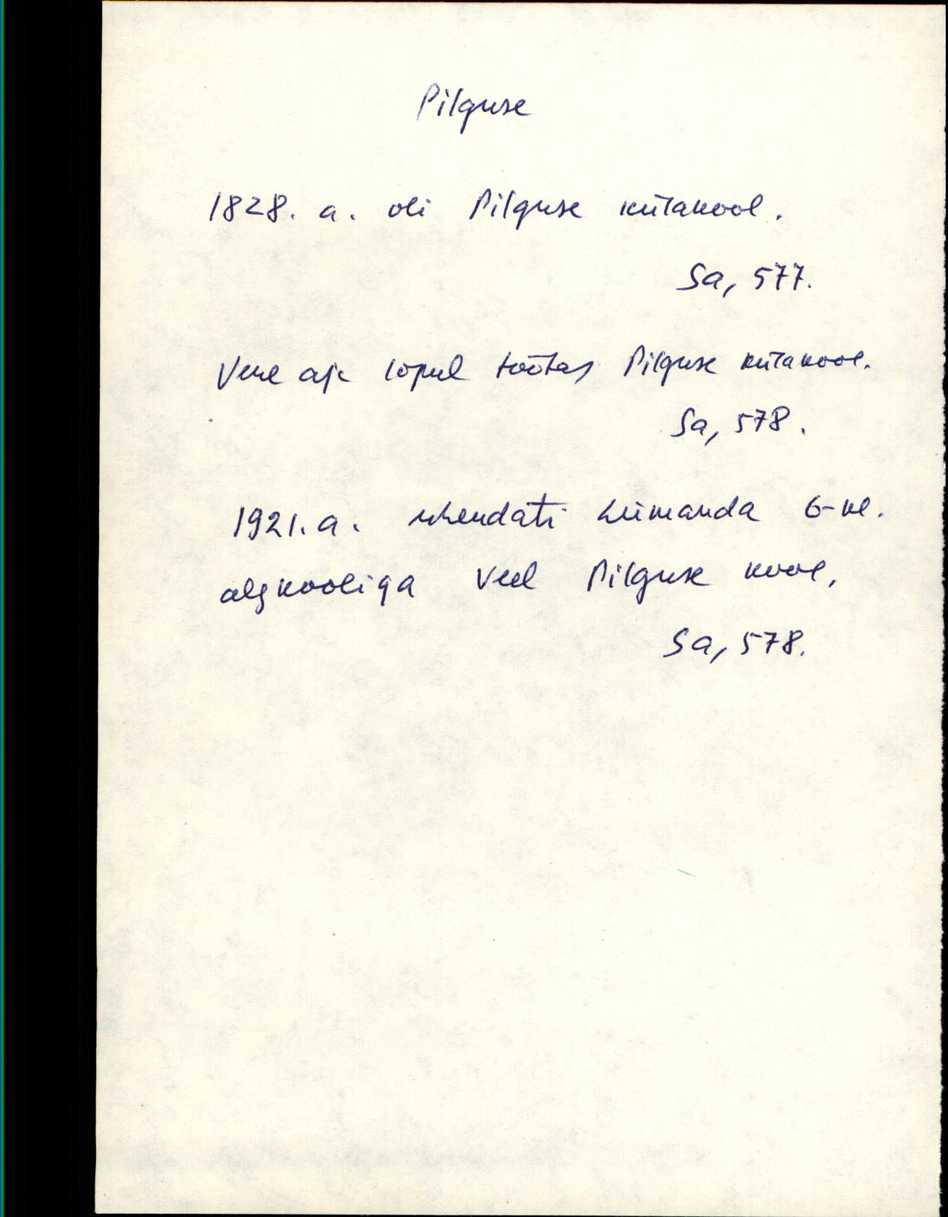 Pilguse
1828. a. oli Pilguse külakool.
Sa, 577.
Vene aja lõpul töötas Pilguse külakool.
Sa, 578.
1921. a. ühendati Lümanda 6-kl.
algkooliga veel Pilguse kool.
Sa, 578.